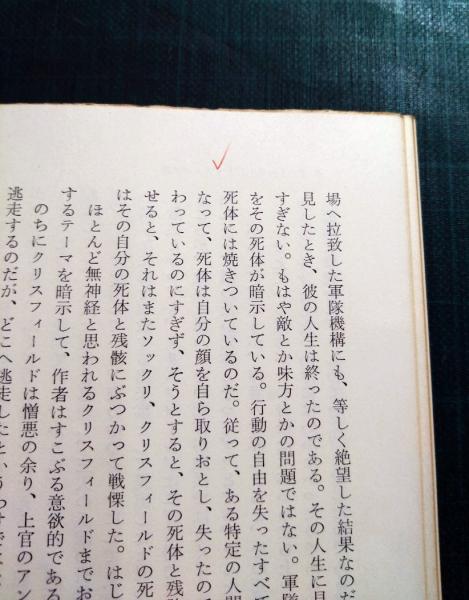 場へ拉致した軍隊機構にも、等しく絶望した結果なのだ
見したとき、彼の人生は終ったのである。その人生に見
すぎない。もはや敵とか味方とかの問題ではない。軍隊
をその死体が暗示している。行動の自由を失ったすべて
死体には焼きついているのだ。従って、ある特定の人間
なって、死体は自分の顔を自ら取りおとし、失ったので
わっているのにすぎず、そうとすると、その死体と残骸
せると、それはまたソックリ、クリスフィールドの死
はその自分の死体と残骸にぶつかって戦慄した。はじ
ほとんど無神経と思われるクリスフィールドまでお
するテーマを暗示して、作者はすこぶる意欲的である
のちにクリスフィールドは憎悪の余り、上官のアン
逃走するのだが、どこへ逃走したというわけでは